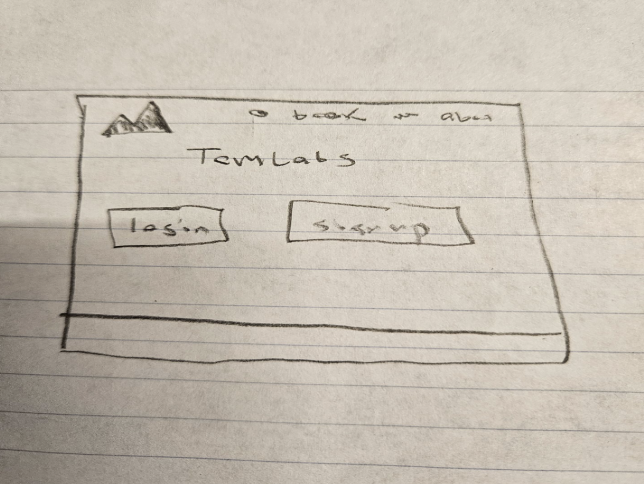 book about
TomLabs
login signup